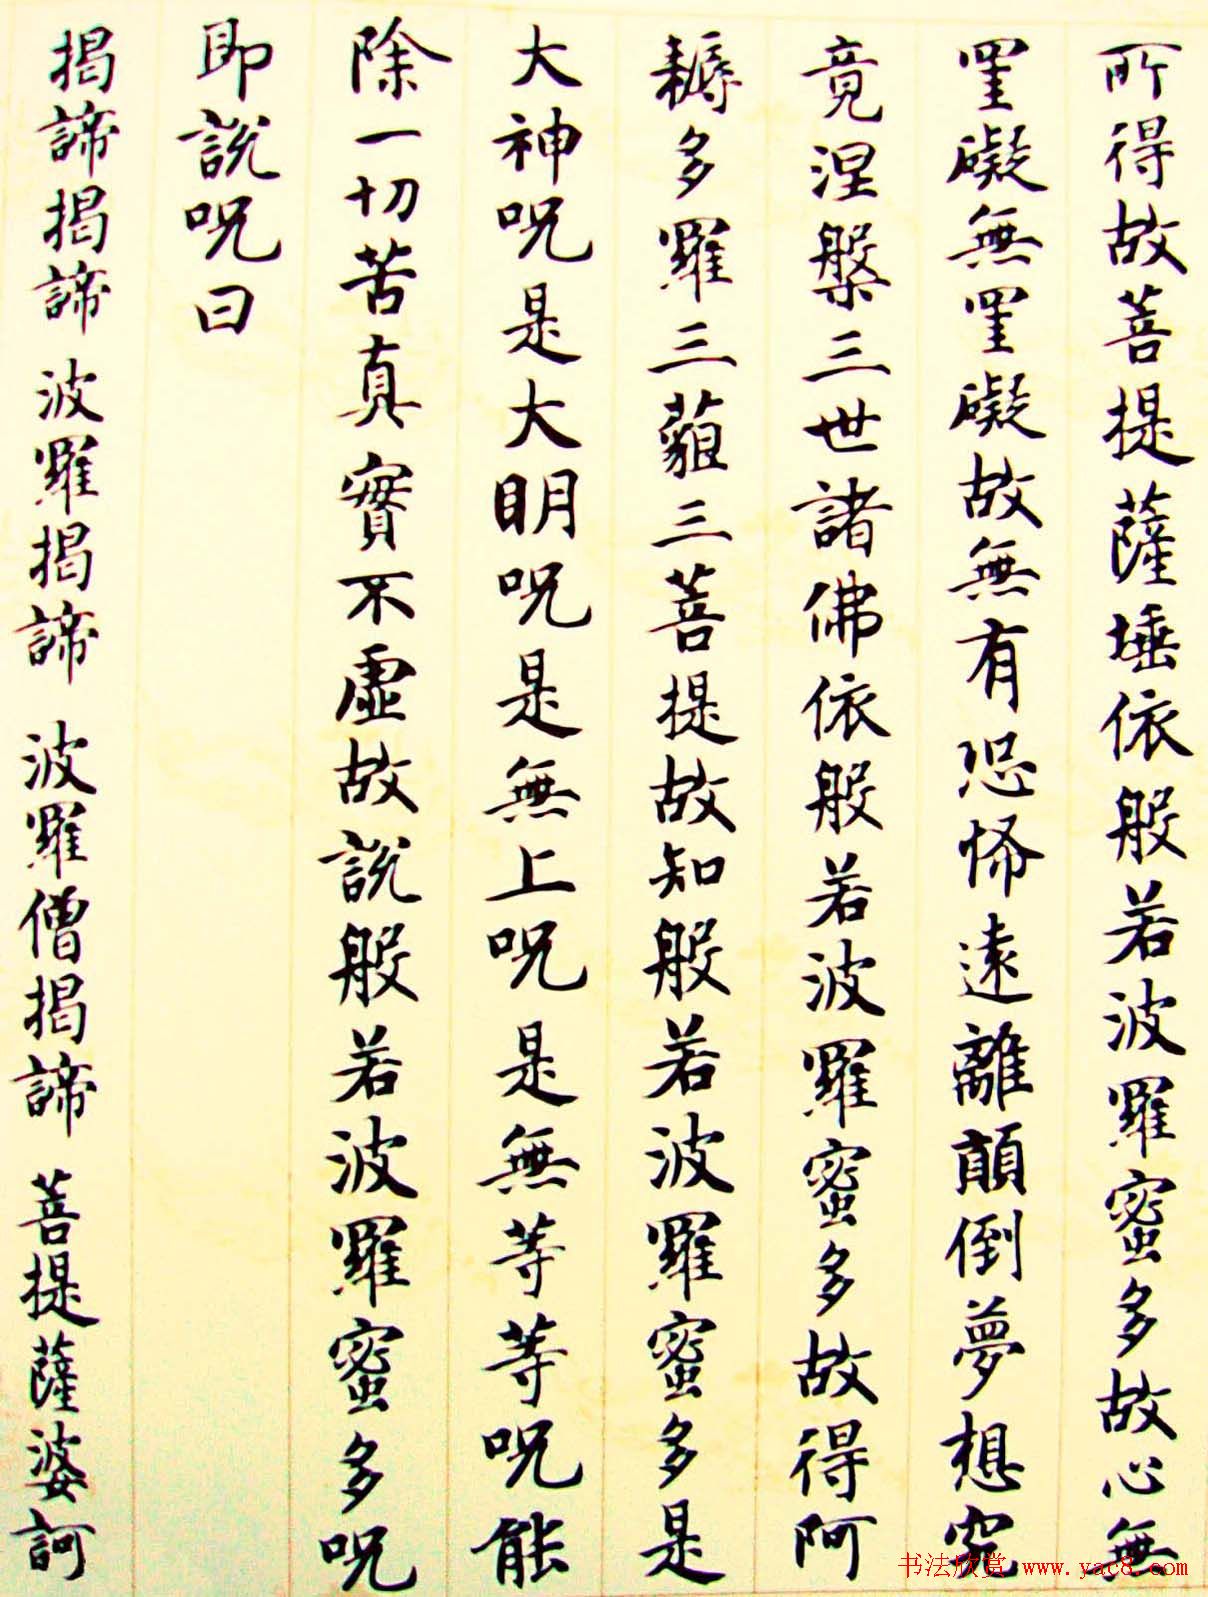 所得故菩提薩埵依般若波羅蜜多故心無
罣礙無罣礙故無有恐怖遠離顛倒夢想究
竟涅槃三世諸佛依般若波羅蜜多故得阿
耨多羅三藐三菩提故知般若波羅蜜多是
大神呪是大明呪是無上呪是無等等呪能
除一切苦真實不虛故說般若波羅蜜多呪
即說呪曰
揭諦揭諦 波羅揭諦 波羅僧揭諦 菩提薩婆訶
书法欣赏 www.yac8.com